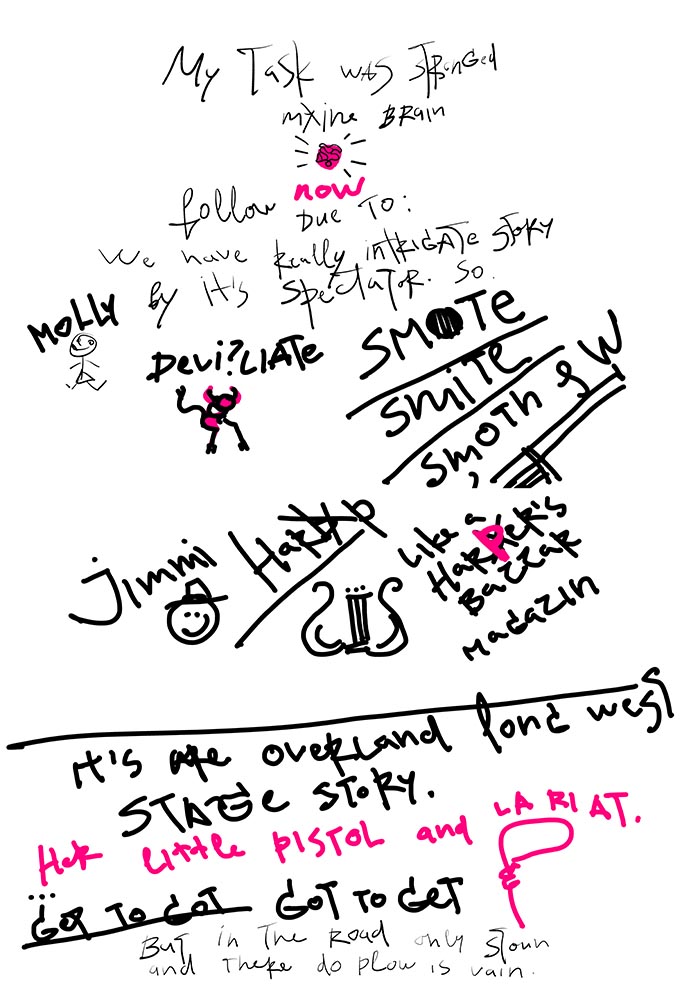 My Task was stranged
mxine BRain
now
follow Due To:
We have Really intRiGATe SToRy
by it's SpectatoR. So.
MOLLY
Devi?LIATe
SMOTe
SMiTe
SMOTH & W
Jimmi HaRp
Like a
HaRPeR's
BaZZaR
MaGaZIN
it's aRe oveRLand Long west
STAGe SToRy.
HeR LiTTLe PiSTOL and LA RI AT.
...
GoT To GoT GoT To GeT
BuT in The Road only SToun
and TheRe do PLow is vain.